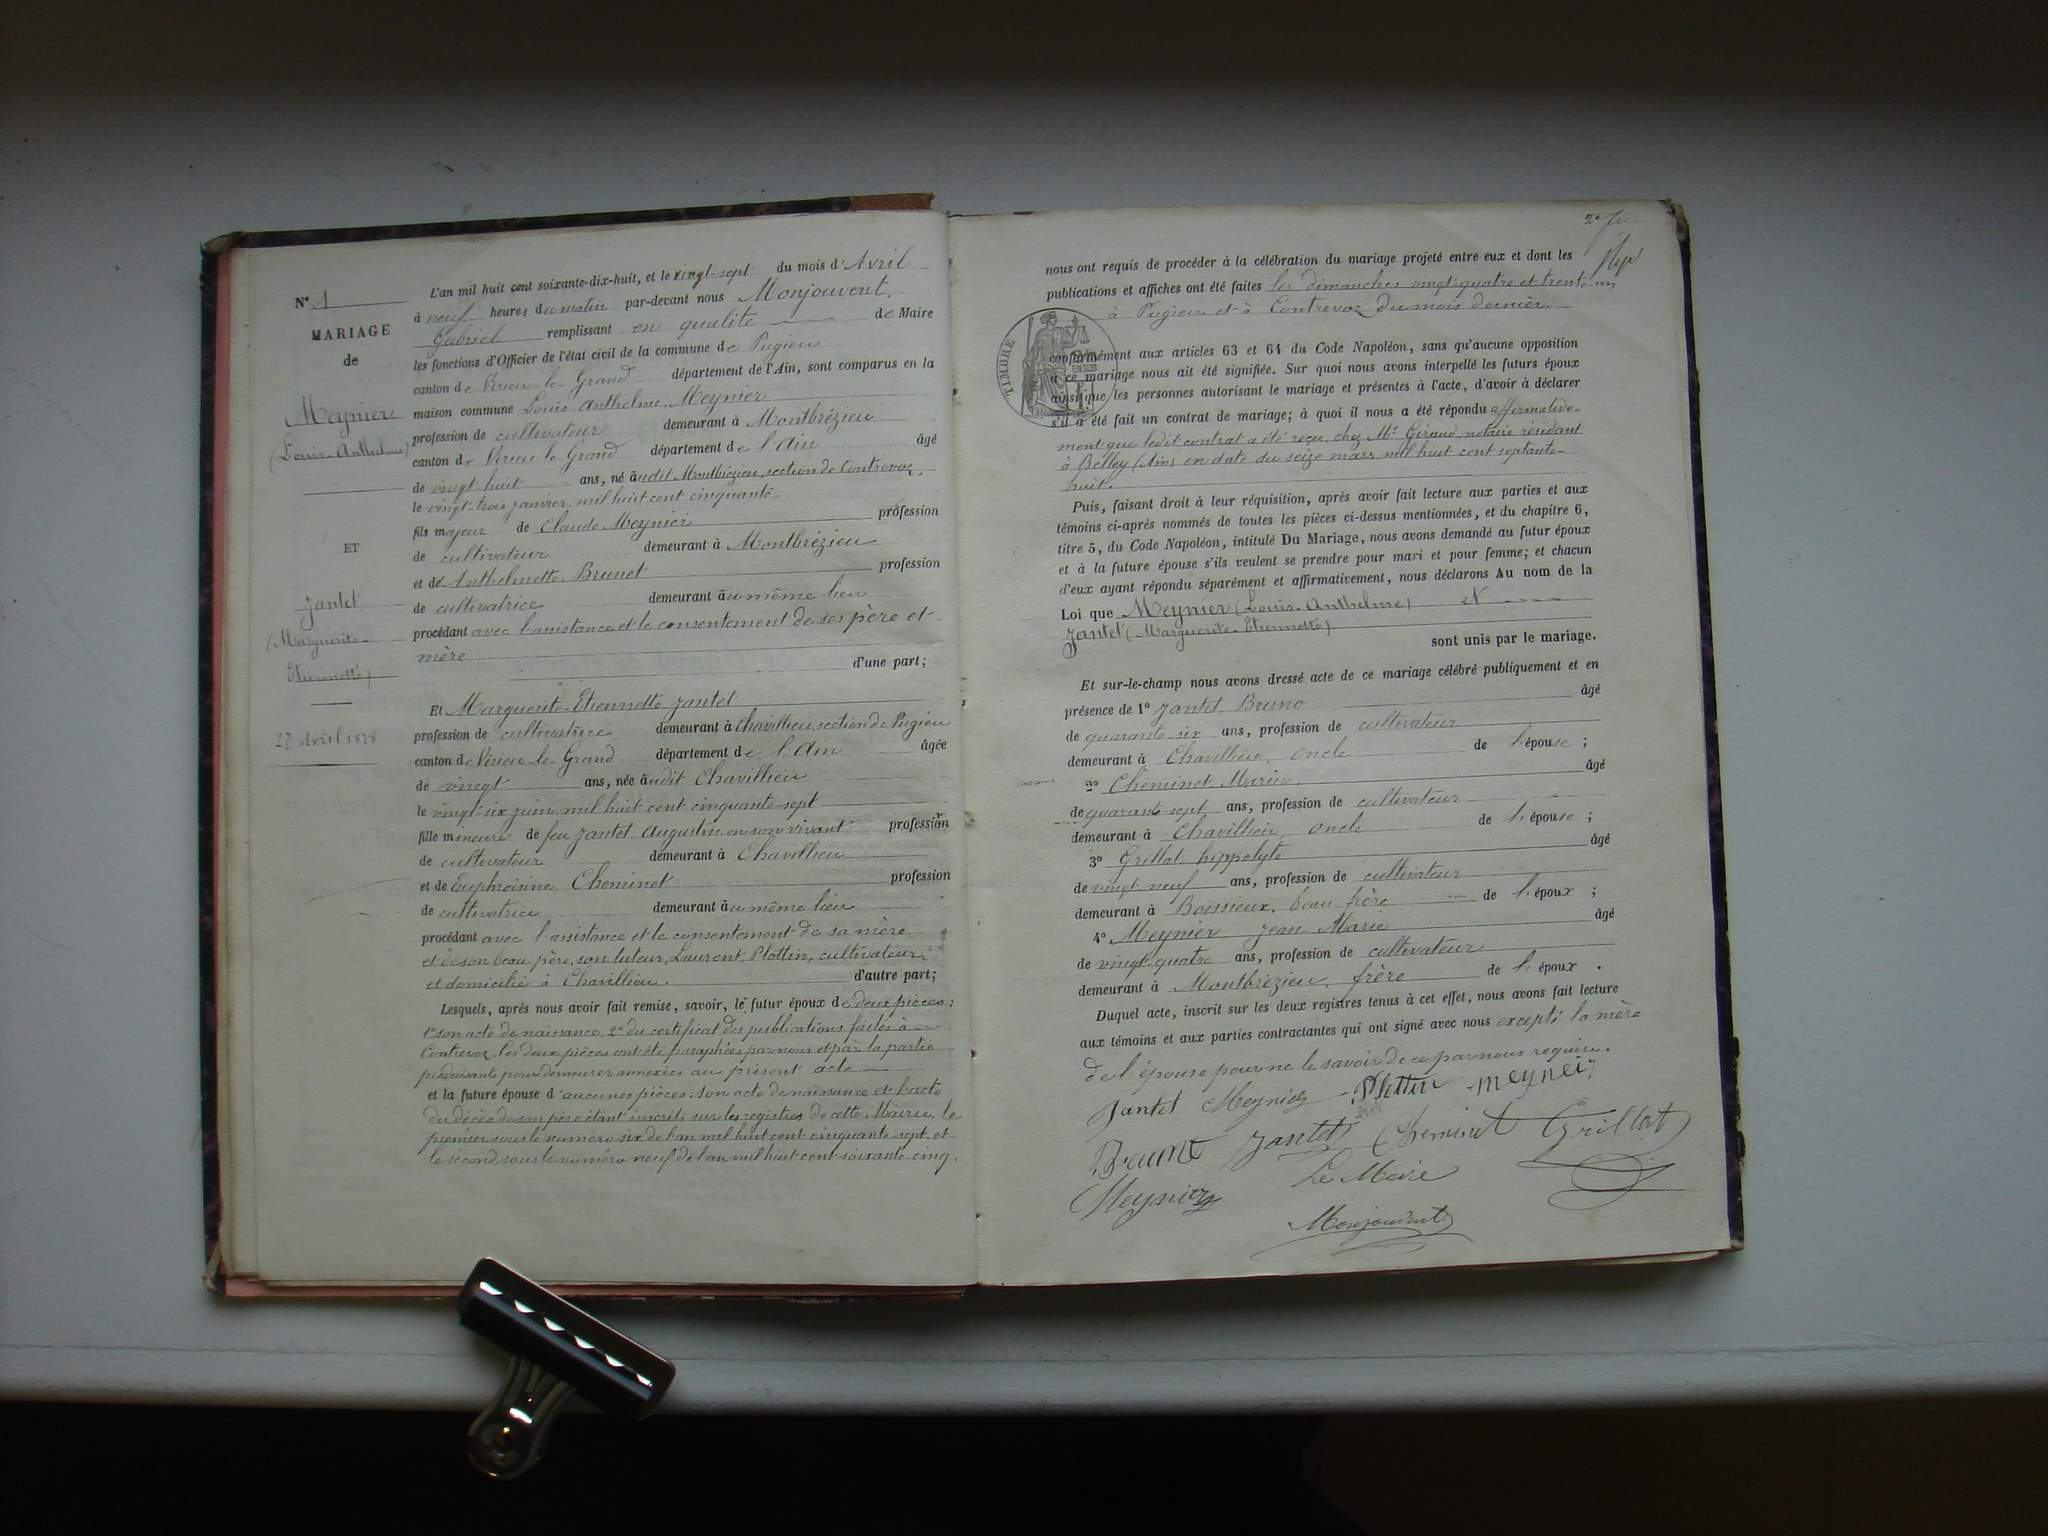 N° 1
MARIAGE
de
Meynier
(Louis-Anthelme)
ET
Jantet
(Marguerite-
Etiennette)
27 Avril 1878
L'an mil huit cent soixante-dix-huit, et le vingt-sept du mois d'Avril
à neuf heures du matin par-devant nous Monjouvent,
Gabriel remplissant en qualité de Maire
les fonctions d'Officier de l'état civil de la commune de Pugieu
canton de Virieu-le-Grand département de l'Ain, sont comparus en la
maison commune Louis-Anthelme Meynier
profession de cultivateur demeurant à Montbrézieu
canton de Virieu-le-Grand département de l'Ain âgé
de vingt-huit ans, né audit Montbrézieu, section de Contrevoz,
le vingt-trois janvier mil huit cent cinquante.
fils majeur de Claude Meynier profession
de cultivateur demeurant à Montbrézieu
et de Anthelmette Brunet profession
de cultivatrice demeurant au même lieu
procédant avec l'assistance et le consentement de ses père et
mère
d'une part;
Et Marguerite-Etiennette Jantet
profession de cultivatrice demeurant à Chavillieu, section de Pugieu
canton de Virieu-le-Grand département de l'Ain âgée
de vingt ans, née audit Chavillieu
le vingt-six juin mil huit cent cinquante-sept
fille mineure de feu Jantet Augustin en son vivant profession
de cultivateur demeurant à Chavillieu
et de Euphroisine Cheminet profession
de cultivatrice demeurant au même lieu
procédant avec l'assistance et le consentement de sa mère
et de son beau père, son tuteur, Laurent Plottin, cultivateur
et domicilié à Chavillieu. d'autre part;
Lesquels, après nous avoir fait remise, savoir, le futur époux de deux pièces:
1° son acte de naissance, 2° du certificat des publications faites à
Contrevoz, les deux pièces ont été paraphées par nous et par la partie
produisante pour demeurer annexées au présent acte
et la future épouse d'aucunes pièces: son acte de naissance et l'acte
du décès de son père étant inscrits sur les registres de cette Mairie, le
premier sous le numéro six de l'an mil huit cent cinquante-sept, et
le second sous le numéro neuf de l'an mil huit cent soixante-cinq.
nous ont requis de procéder à la célébration du mariage projeté entre eux et dont les
publications et affiches ont été faites les dimanches vingt-quatre et trente-un
à Pugieu et à Contrevoz du mois dernier.
TIMBRE
conformément aux articles 63 et 64 du Code Napoléon, sans qu'aucune opposition
à ce mariage nous ait été signifiée. Sur quoi nous avons interpellé les futurs époux
ainsi que les personnes autorisant le mariage et présentes à l'acte, d'avoir à déclarer
s'il a été fait un contrat de mariage; à quoi il nous a été répondu affirmative-
ment que ledit contrat a été reçu chez Me Giraud notaire résidant
à Belley (Ain) en date du seize mars mil huit cent septante-
huit.
Puis, faisant droit à leur réquisition, après avoir fait lecture aux parties et aux
témoins ci-après nommés de toutes les pièces ci-dessus mentionnées, et du chapitre 6,
titre 5, du Code Napoléon, intitulé Du Mariage, nous avons demandé au futur époux
et à la future épouse s'ils veulent se prendre pour mari et pour femme; et chacun
d'eux ayant répondu séparément et affirmativement, nous déclarons Au nom de la
Loi que Meynier (Louis-Anthelme) et
Jantet (Marguerite-Etiennette)
sont unis par le mariage.
Et sur-le-champ nous avons dressé acte de ce mariage célébré publiquement et en
présence de 1° Jantet Bruno âgé
de quarante-six ans, profession de cultivateur
demeurant à Chavillieu, oncle de l'épouse;
2° Cheminet Marin âgé
de quarante-sept ans, profession de cultivateur
demeurant à Chavillieu, oncle de l'épouse;
3° Grillot hippolyte âgé
de vingt neuf ans, profession de cultivateur
demeurant à Boissieux, beau frère de l'époux;
4° Meynier Jean Marie âgé
de vingt-quatre ans, profession de cultivateur
demeurant à Montbrézieu, frère de l'époux.
Duquel acte, inscrit sur les deux registres tenus à cet effet, nous avons fait lecture
aux témoins et aux parties contractantes qui ont signé avec nous excepté la mère
de l'épouse pour ne le savoir de ce par nous requise.
Jantet Meynier Plottin Meynier
Brunet Jantet Cheminet Grillot
Meynier Le Maire
Monjouvent